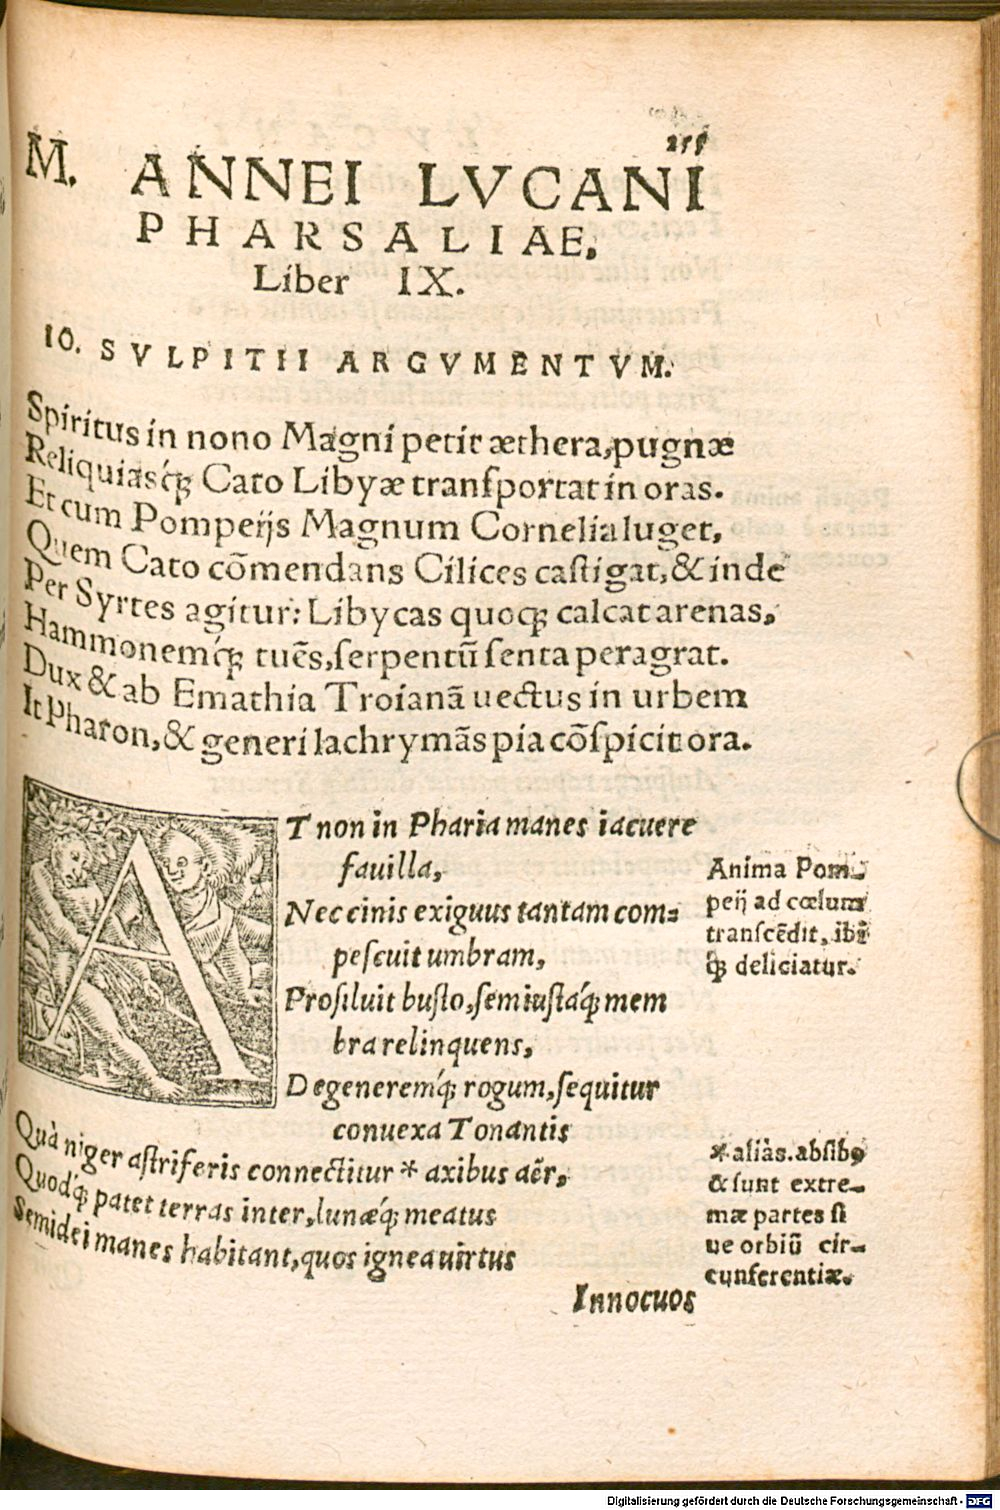 M. ANNEI LVCANI
PHARSALIAE,
Liber IX.
IO. SVLPITII ARGVMENTVM.
Spiritus in nono Magni petit æthera, pugnæ
Reliquiasq́ꝫ Cato Libyæ tranſportat in oras.
Et cum Pompeijs Magnum Cornelia luget,
Quem Cato cōmendans Cilices caſtigat, & inde
Per Syrtes agitur: Libycas quoqꝫ calcat arenas,
Hammonemq́ꝫ tuēs, ſerpentū ſenta peragrat.
Dux & ab Emathia Troianā uectus in urbem
It Pharon, & generi lachrymās pia cōſpicit ora.
AT non in Pharia manes iacuere
fauilla,
Nec cinis exiguus tantam com⸗
peſcuit umbram,
Proſiluit buſto, ſemiuſtaq́ꝫ mem
bra relinquens,
Degeneremq́ꝫ rogum, ſequitur
conuexa Tonantis
Quà niger aſtriferis connectitur * axibus aër,
Quodq́ꝫ patet terras inter, lunæq́ꝫ meatus
Semidei manes habitant, quos ignea uirtus
Innocuos
Anima Pom⸗
peij ad cœlum
tranſcēdit, ibi
qꝫ deliciatur.
* aliàs. absibꝰ
& ſunt extre⸗
mæ partes ſi
ue orbiū cir⸗
cunferentiæ.
Digitalisierung gefördert durch die Deutsche Forschungsgemeinschaft - DFG